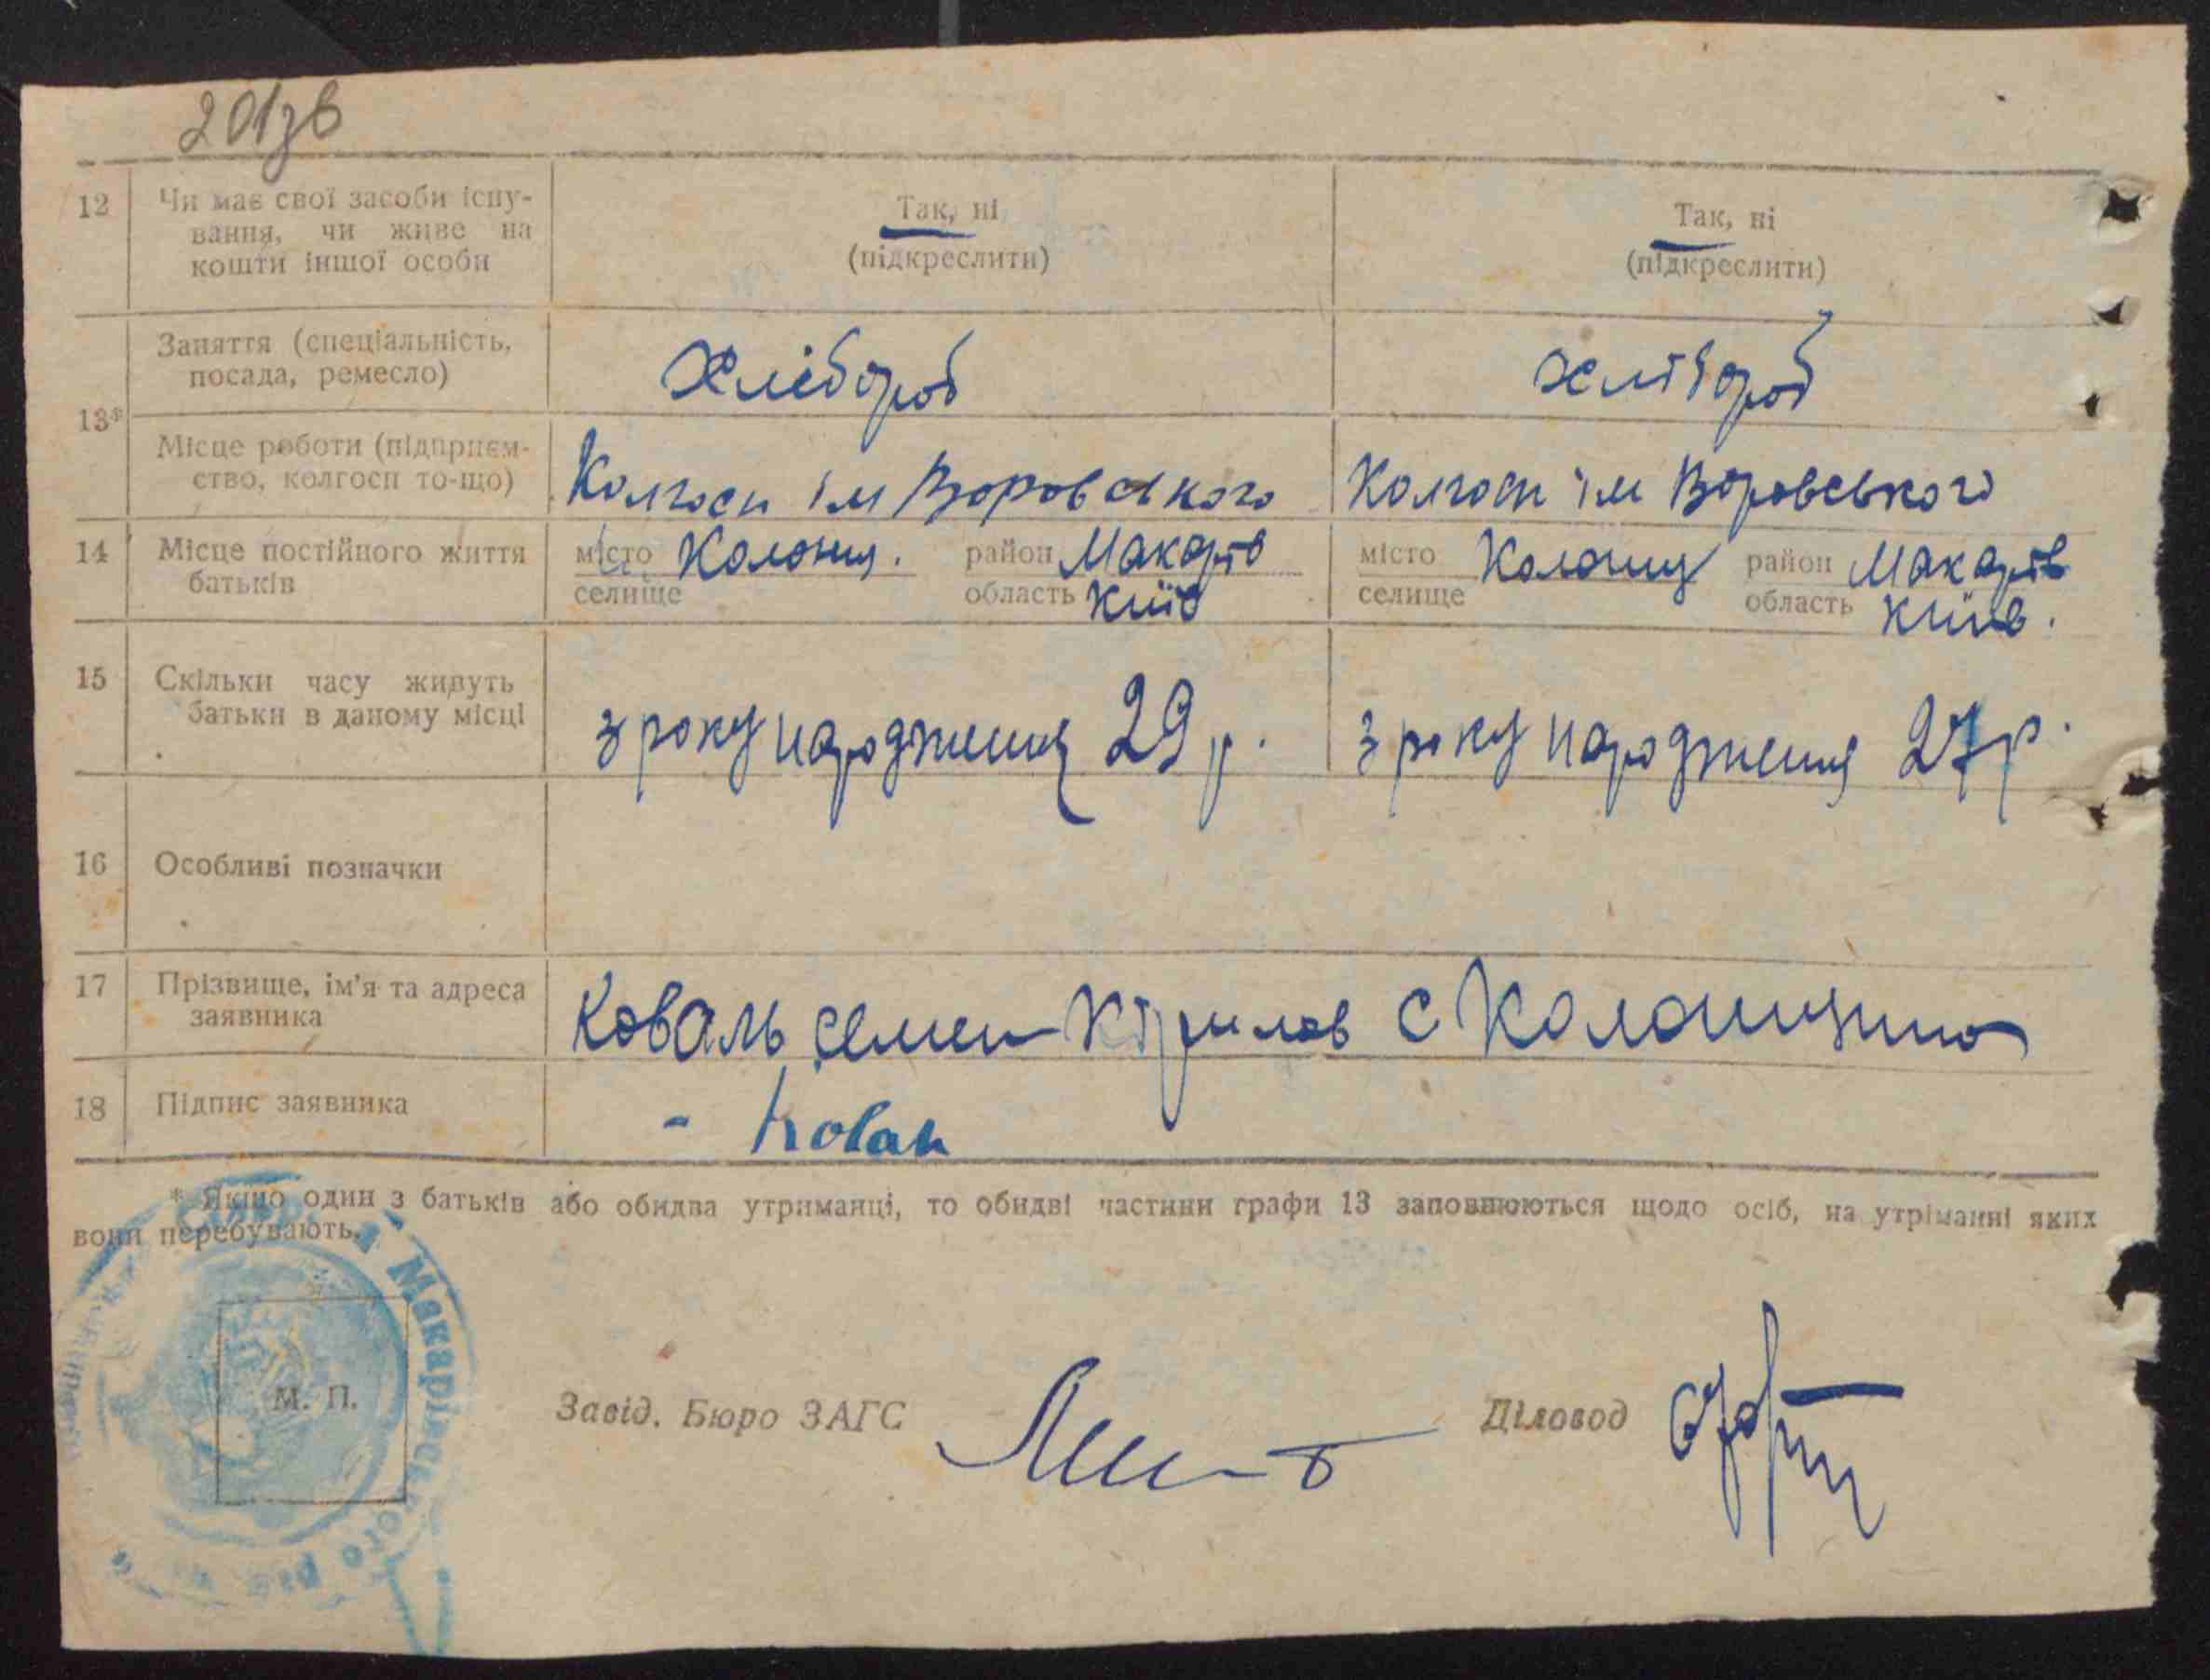 201зв
12 Чи має свої засоби існу-
вання, чи живе на
кошти іншої особи
Так, ні
(підкреслити)
Так, ні
(підкреслити)
13*
Заняття (спеціальність,
посада, ремесло)
Хлібороб
хлібороб
Місце роботи (підприєм-
ство, колгосп то-що)
Колгосп ім Воровського
Колгосп ім Воровського
14 Місце постійного життя
батьків
місто Колонщ. район Макарів
селище область Київ
місто Колонщ район Макарів
селище область Київ.
15 Скільки часу живуть
батьки в даному місці
з року народження 29 р.
з року народження 27 р.
16 Особливі позначки
17 Прізвище, ім'я та адреса
заявника
Коваль семен Кірилов с Колонщино
18 Підпис заявника
- Коваль
* Якщо один з батьків або обидва утриманці, то обидві частини графи 13 заповнюються щодо осіб, на утріманні яких
вони перебувають.
Макарівського
М. П.
Завід. Бюро ЗАГС
Діловод